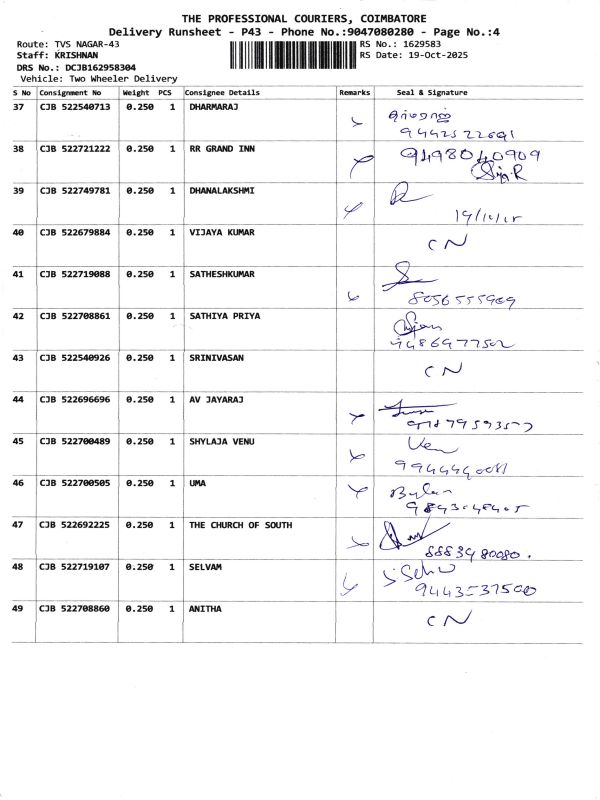 THE PROFESSIONAL COURIERS, COIMBATORE
Delivery Runsheet - P43 - Phone No.:9047080280 - Page No.:4
Route: TVS NAGAR-43 RS No.: 1629583
Staff: KRISHNAN RS Date: 19-Oct-2025
DRS No.: DCJB162958304
Vehicle: Two Wheeler Delivery
S No Consignment No Weight PCS Consignee Details Remarks Seal & Signature
37 CJB 522540713 0.250 1 DHARMARAJ தர்மராஜ்
38 CJB 522721222 0.250 1 RR GRAND INN 9498040909
39 CJB 522749781 0.250 1 DHANALAKSHMI
40 CJB 522679884 0.250 1 VIJAYA KUMAR CN
41 CJB 522719088 0.250 1 SATHESHKUMAR
8056555969
42 CJB 522708861 0.250 1 SATHIYA PRIYA
9486977502
43 CJB 522540926 0.250 1 SRINIVASAN CN
44 CJB 522696696 0.250 1 AV JAYARAJ
45 CJB 522700489 0.250 1 SHYLAJA VENU Ven
9944490081
46 CJB 522700505 0.250 1 UMA
47 CJB 522692225 0.250 1 THE CHURCH OF SOUTH
8883980080.
48 CJB 522719107 0.250 1 SELVAM
9443537500
49 CJB 522708860 0.250 1 ANITHA CN